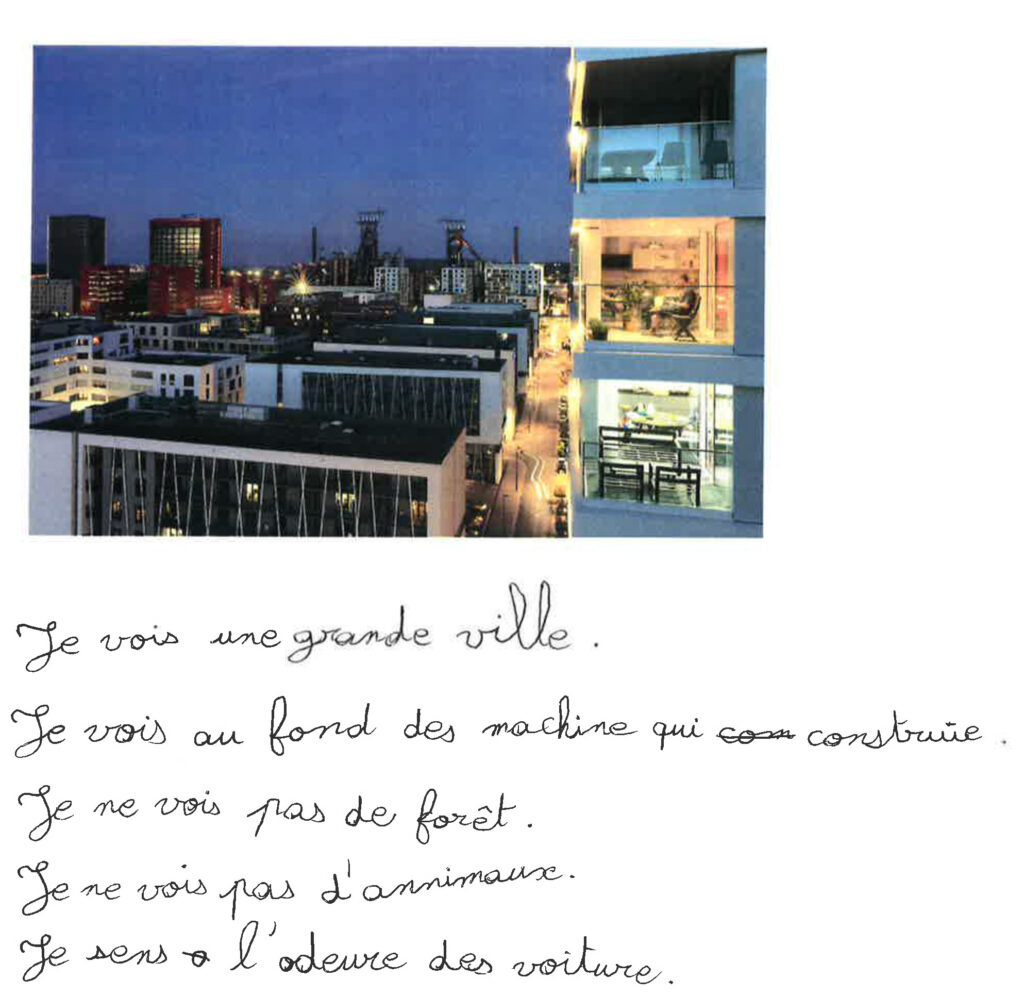 Je vois une grande ville.
Je vois au fond des machine qui com construiie.
Je ne vois pas de forêt.
Je ne vois pas d'annimaux.
Je sens o l'odeure des voiture.